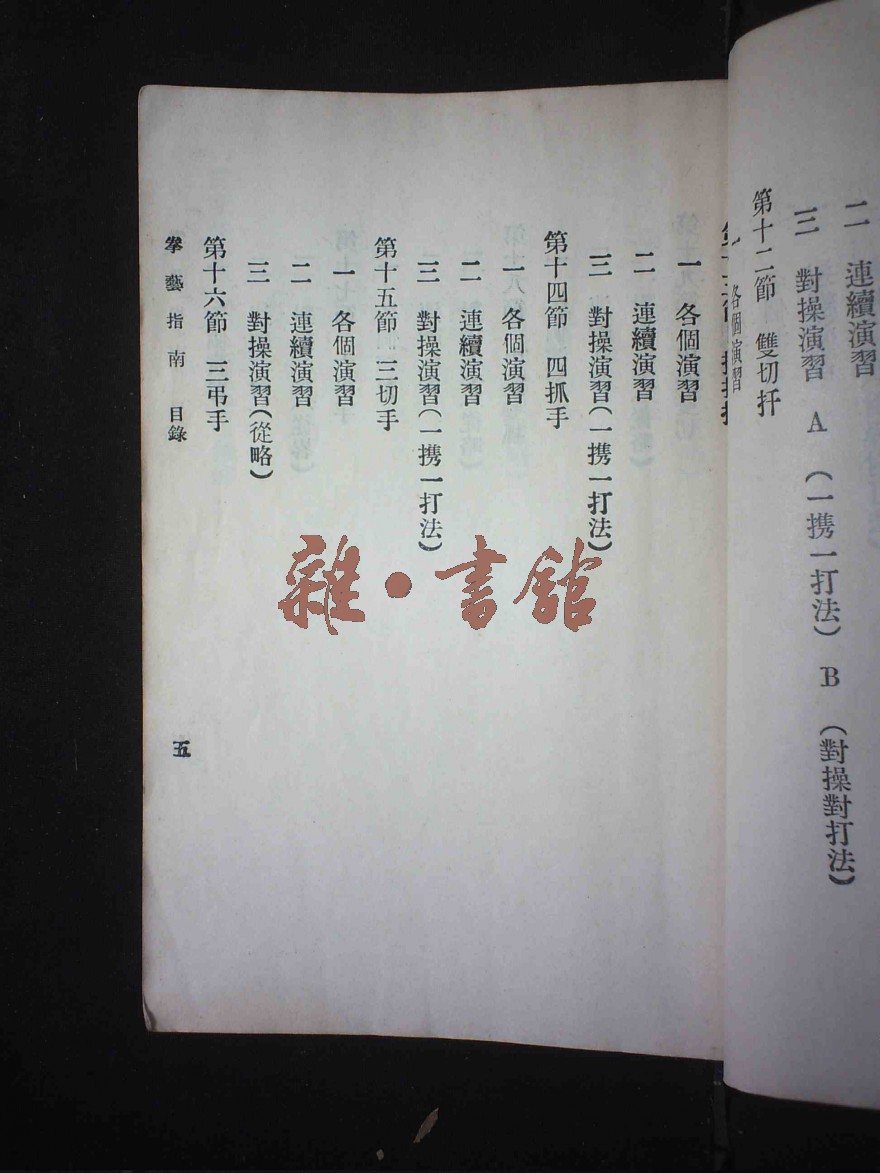 二 連續演習
三 對操演習 A (一携一打法) B (對操對打法)
第十二節 雙切扞
一 各個演習
一 各個演習
二 連續演習
三 對操演習(一携一打法)
第十四節 四抓手
一 各個演習
二 連續演習
三 對操演習(一携一打法)
第十五節 三切手
一 各個演習
二 連續演習
三 對操演習(從略)
第十六節 三弔手
拳藝指南 目錄
五
雜·書館